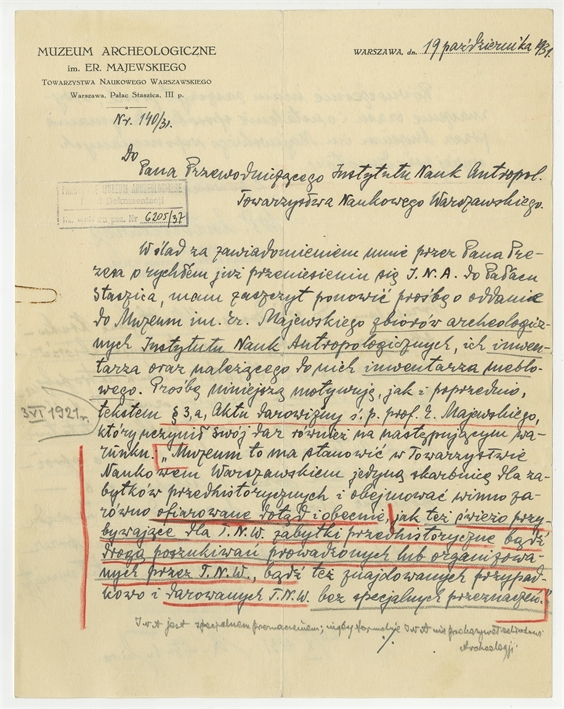 MUZEUM ARCHEOLOGICZNE
im. ER. MAJEWSKIEGO
TOWARZYSTWA NAUKOWEGO WARSZAWSKIEGO
Warszawa, Pałac Staszica, III p.
WARSZAWA, dn. 19 października 1931.
Nr. 140/31.
Do
Pana Przewodniczącego Instytutu Nauk Antropol.
Towarzystwa Naukowego Warszawskiego.
MUZEUM ARCHEOLOGICZNE
i Dokumentacji
Nr. 6205/37
W ślad za zawiadomieniem mnie przez Pana Pre-
zesa o rychłem już przeniesieniu się I.N.A. do Pałacu
Staszica, mam zaszczyt ponowić prośbę o oddanie
do Muzeum im. Er. Majewskiego zbiorów archeologicz-
nych Instytutu Nauk Antropologicznych, ich inwen-
tarza oraz należącego do nich inwentarza meblo-
wego. Prośbę niniejszą motywuję, jak i poprzednio,
tekstem § 3, a, Aktu darowizny ś. p. prof. E. Majewskiego,
3 VI 1921 r.
który uczynił swój dar również na następującym wa-
runku: „Muzeum to ma stanowić w Towarzystwie
Naukowem Warszawskiem jedyną skarbnicę dla za-
bytków przedhistorycznych i obejmować winno za-
równo ofiarowane dotąd i obecnie, jak też świeżo przy-
bywające dla T.N.W. zabytki przedhistoryczne bądź
drogą poszukiwań prowadzonych lub organizowa-
nych przez T.N.W., bądź też znajdowanych przypad-
kowo i darowanych T.N.W. bez specjalnych przeznaczeń."
I.N.A. jest specjalnem przeznaczeniem; nigdy I.N.A. nie
Archeologji